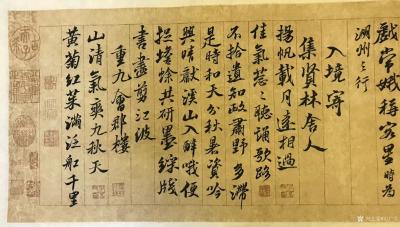 戲常娥稱客星時為
湖州之行
入境寄
集賢林舍人
揚帆載月遠相過
佳氣蔥蔥聽誦歌路
不拾遺知政肅野多滯
是時和天分秋暑資吟
興晴獻溪山入醉哦便
捉蟾蜍共研墨綵牋
書盡剪江波
重九會郡樓
山清氣爽九秋天
黃菊紅茱滿泛船千里